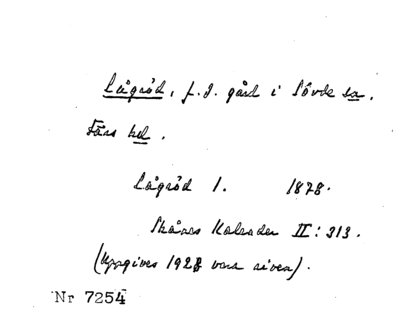 Lågröd, f.d. gård i Sövde sn.
Färs hd.
Lågröd 1. 1878.
Skånes Kalender II: 313.
(Uppgives 1928 vara riven).
Nr 7254